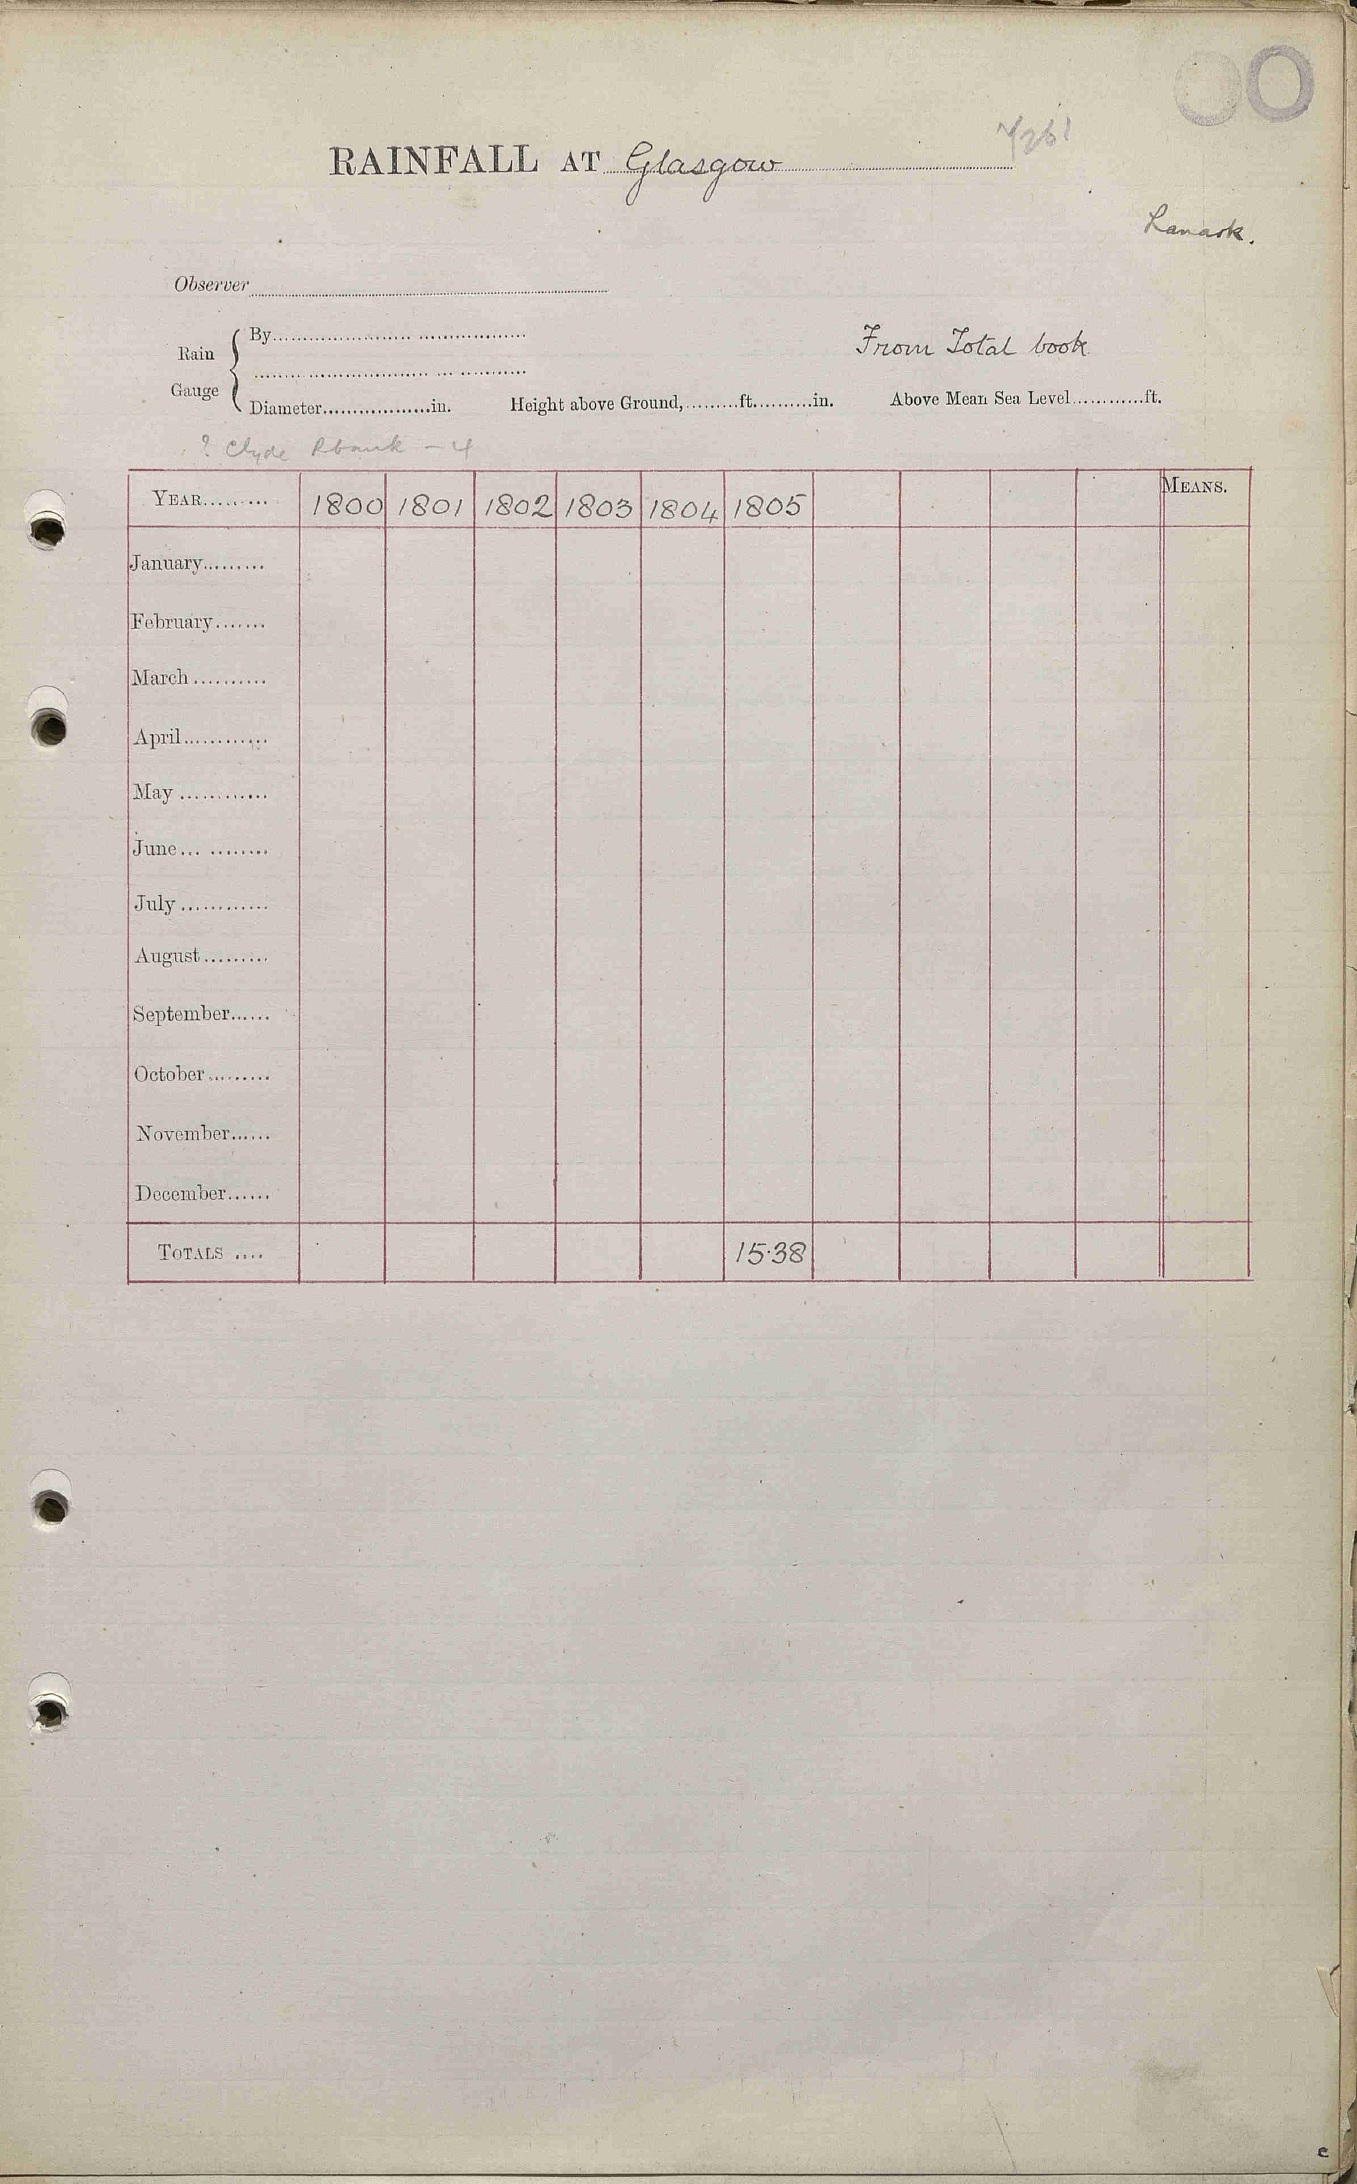 00
RAINFALL AT Glasgow
Lanark.
Observer
Rain Gauge { By
From Total book
Diameter..................in. Height above Ground,.........ft..........in. Above Mean Sea Level............ft.
? Clyde - 4
YEAR......... 1800 1801 1802 1803 1804 1805 MEANS.
January.........
February.......
March..........
April............
May ............
June... ........
July............
August.........
September......
October.........
November......
December......
TOTALS .... 15.38
c